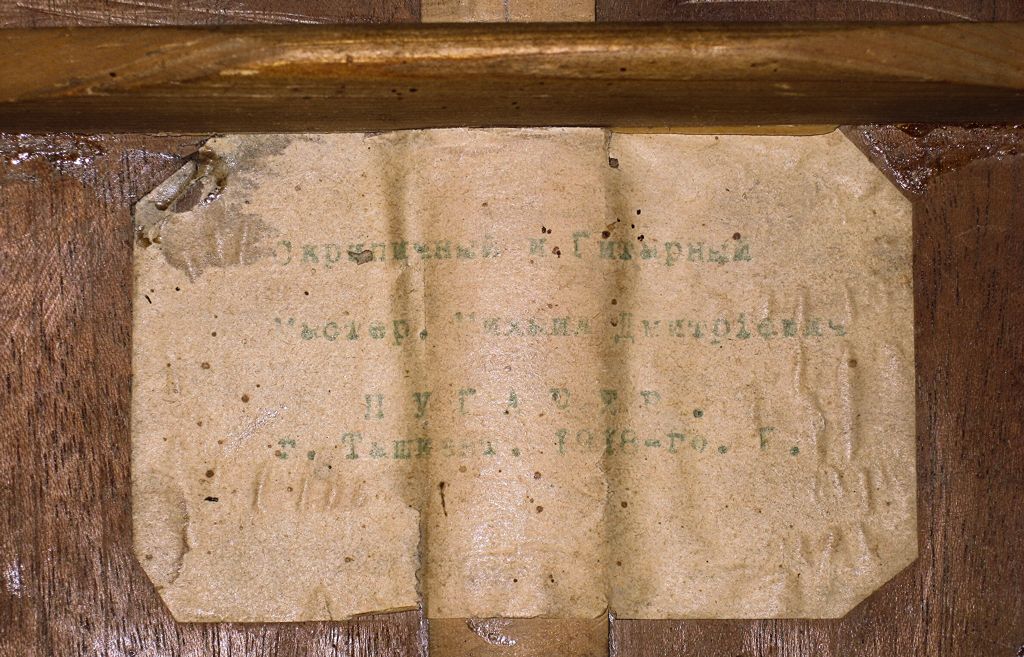 Скрипичный и Гитарный
Мастер. Михаил Дмитріевич
г. Ташкент. 1918-го. Г.